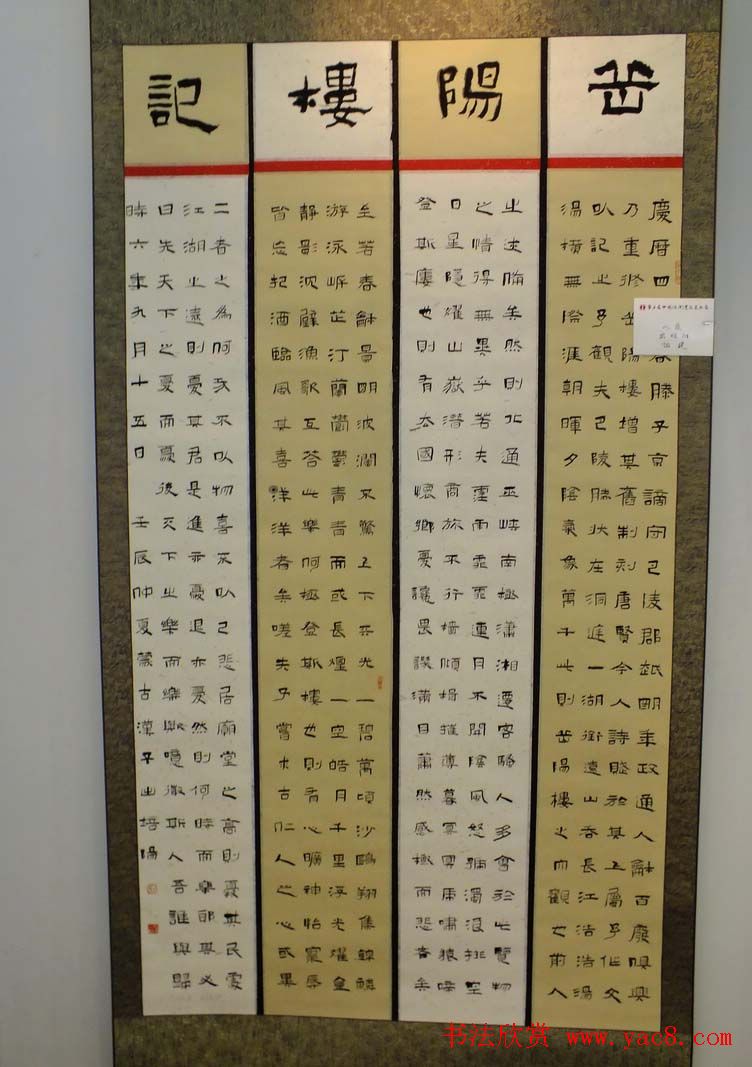 岳陽樓記
慶曆四春滕子京謫守巴陵郡越明年政通人龢百廢俱興
乃重修岳陽樓增其舊制刻唐賢今人詩賦於其上屬予作文
以記之予觀夫巴陵勝狀在洞庭一湖銜遠山吞長江浩浩湯
湯橫無際涯朝暉夕陰氣象萬千此則岳陽樓之大觀也前人
之述備矣然則北通巫峽南極瀟湘遷客騷人多會於此覽物
之情得無異乎若夫霪雨霏霏連月不開陰風怒號濁浪排空
日星隱耀山嶽潛形商旅不行檣傾楫摧薄暮冥冥虎嘯猿啼
登斯樓也則有去國懷鄉憂讒畏譏滿目蕭然感極而悲者矣
至若春龢景明波瀾不驚上下天光一碧萬頃沙鷗翔集錦鱗
游泳岸芷汀蘭鬱鬱青青而或長煙一空皓月千里浮光耀金
靜影沈璧漁歌互答此樂何極登斯樓也則有心曠神怡寵辱
皆忘把酒臨風其喜洋洋者矣嗟夫予嘗求古仁人之心或異
二者之為何哉不以物喜不以己悲居廟堂之高則憂其民處
江湖之遠則憂其君是進亦憂退亦憂然則何時而樂耶其必
曰先天下之憂而憂後天下之樂而樂歟噫微斯人吾誰與歸
時六年九月十五日 壬辰仲夏蒙古漢子之培陽
书法欣赏 www.yac8.com